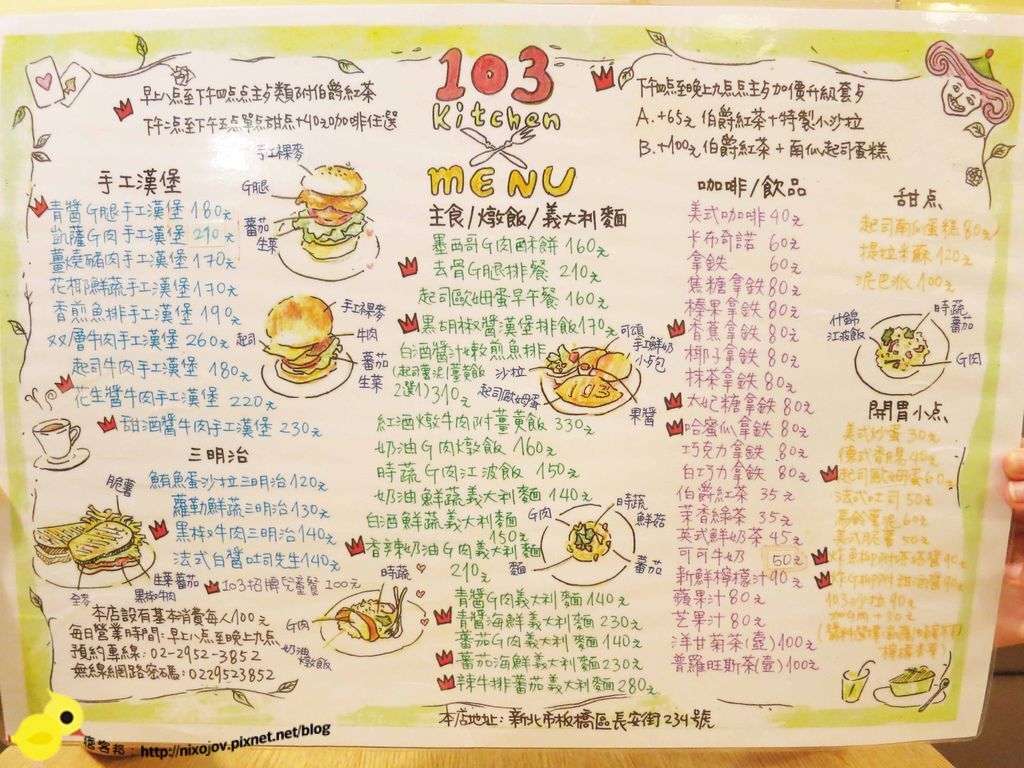 103
Kitchen
MENU
早上八点至下午四点点主食類附伯爵紅茶
下午二点至下午五點單點甜点+40元咖啡任選
下午四点至晚上九点点主食加價升級套餐
A.+65元 伯爵紅茶+特製小沙拉
B.+100元伯爵紅茶+南仙起司蛋糕
手工漢堡
青醬G腿手工漢堡 180元
凱薩G肉手工漢堡 210元
薑燒豬肉手工漢堡 170元
花椰鮮蔬手工漢堡 170元
香煎魚排手工漢堡 190元
双層牛肉手工漢堡 260元
起司牛肉手工漢堡 180元
花生醬牛肉手工漢堡 220元
甜酒醬牛肉手工漢堡 230元
手工裸麥
G腿
蕃茄
生菜
手工裸麥
起司
牛肉
蕃茄
生菜
三明治
鮪魚蛋沙拉三明治 120元
蘿勒鮮蔬三明治 130元
黑椒牛肉三明治 140元
法式白醬吐司先生 140元
103招牌兒童餐 100元
脆薯
生菜蕃茄
全麥
黑椒牛肉
本店設有基本消費每人100元
每日營業時間:早上八点至晚上九点
預約專線:02-2952-3852
無線網路密碼:0229523852
主食/燉飯/義大利麵
墨西哥G肉酥餅 160元
去骨G腿排餐 210元
起司歐姆蛋早午餐 160元
黑胡椒醬漢堡排飯 170元
白酒醬汁嫩煎魚排
(起司薯泥/薑黃飯
2選1) 310元
紅酒燉牛肉附薑黃飯 330元
奶油G肉燉飯 160元
時蔬G肉江波飯 150元
奶油鮮蔬義大利麵 140元
白酒鮮蔬義大利麵
150元
香辣奶油G肉義大利麵
210元
青醬G肉義大利麵 140元
青醬海鮮義大利麵 230元
蕃茄G肉義大利麵 140元
蕃茄海鮮義大利麵 230元
辣牛排蕃茄義大利麵 280元
可頌
手工鮮奶
小包
沙拉
起司歐姆蛋
果醬
時蔬
G肉
鮮菇
麵
蕃茄
時蔬
G肉
奶油
燉飯
咖啡/飲品
美式咖啡 40元
卡布奇諾 60元
拿鉄 60元
焦糖拿鉄 80元
榛果拿鉄 80元
香蕉拿鉄 80元
椰子拿鉄 80元
抹茶拿鉄 80元
太妃糖拿鉄 80元
哈蜜瓜拿鉄 80元
巧克力拿鉄 80元
白巧力拿鉄 80元
伯爵紅茶 35元
茉香綠茶 35元
英式鮮奶茶 45元
可可牛奶 50元
新鮮檸檬汁 90元
蘋果汁 80元
芒果汁 80元
洋甘菊茶(壺) 100元
普羅旺斯茶(壺) 100元
甜点
起司南瓜蛋糕 80元
提拉米蘇 120元
泥巴派 100元
什錦
江波飯
時蔬
蕃茄
G肉
開胃小点
美式炒蛋 30元
德式香腸 40元
起司歐姆蛋 60元
法式吐司 50元
馬鈴薯泥 60元
美式脆薯 50元
炸魚柳附塔塔醬 90元
炸G柳附甜酒醬 90元
103沙拉 90元
加G肉+30元
本店地址:新北市板橋區長安街234號
痞客邦:http://nixojov.pixnet.net/blog